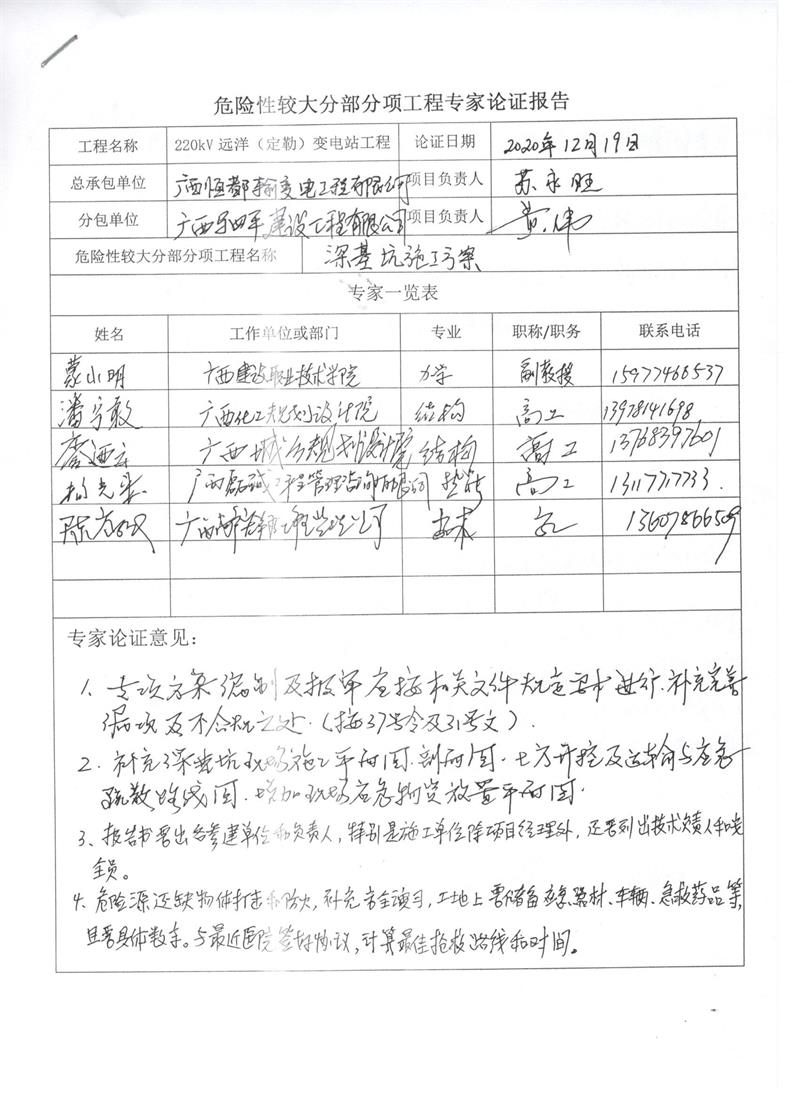 危险性较大分部分项工程专家论证报告
工程名称 220kV 远洋（定勒）变电站工程 论证日期 2020年12月19日
总承包单位 广西恒都输变电工程有限公司 项目负责人 苏永胜
分包单位 建设工程有限公司 项目负责人 黄伟
危险性较大分部分项工程名称 深基坑施工方案
专家一览表
姓名 工作单位或部门 专业 职称/职务 联系电话
蒙小明 广西建设职业技术学院 力学 副教授 15977466537
潘宇敢 广西化工规划设计院 结构 高工 13978141698
广西城乡规划设计院 结构 高工 13768397601
工程管理咨询有限公司 高工 13117717733
13607866509
专家论证意见：
1. 专项方案编制及报审应按相关文件规定要求进行.补充完善
漏项及不合规之处.（按37号令及31号文）.
2. 补充深基坑现场施工平面图.剖面图.土方开挖及运输与应急
疏散路线图.增加现场应急物资放置平面图.
3、报告书要出各参建单位和负责人，特别是施工单位除项目经理外，还要列出技术负责人和安
全员。
4. 危险源还缺物体打击和防火，补充安全演习，工地上要储备应急器材、车辆、急救药品等，
且要具体数字。与最近医院签好协议，计算最佳抢救路线和时间。